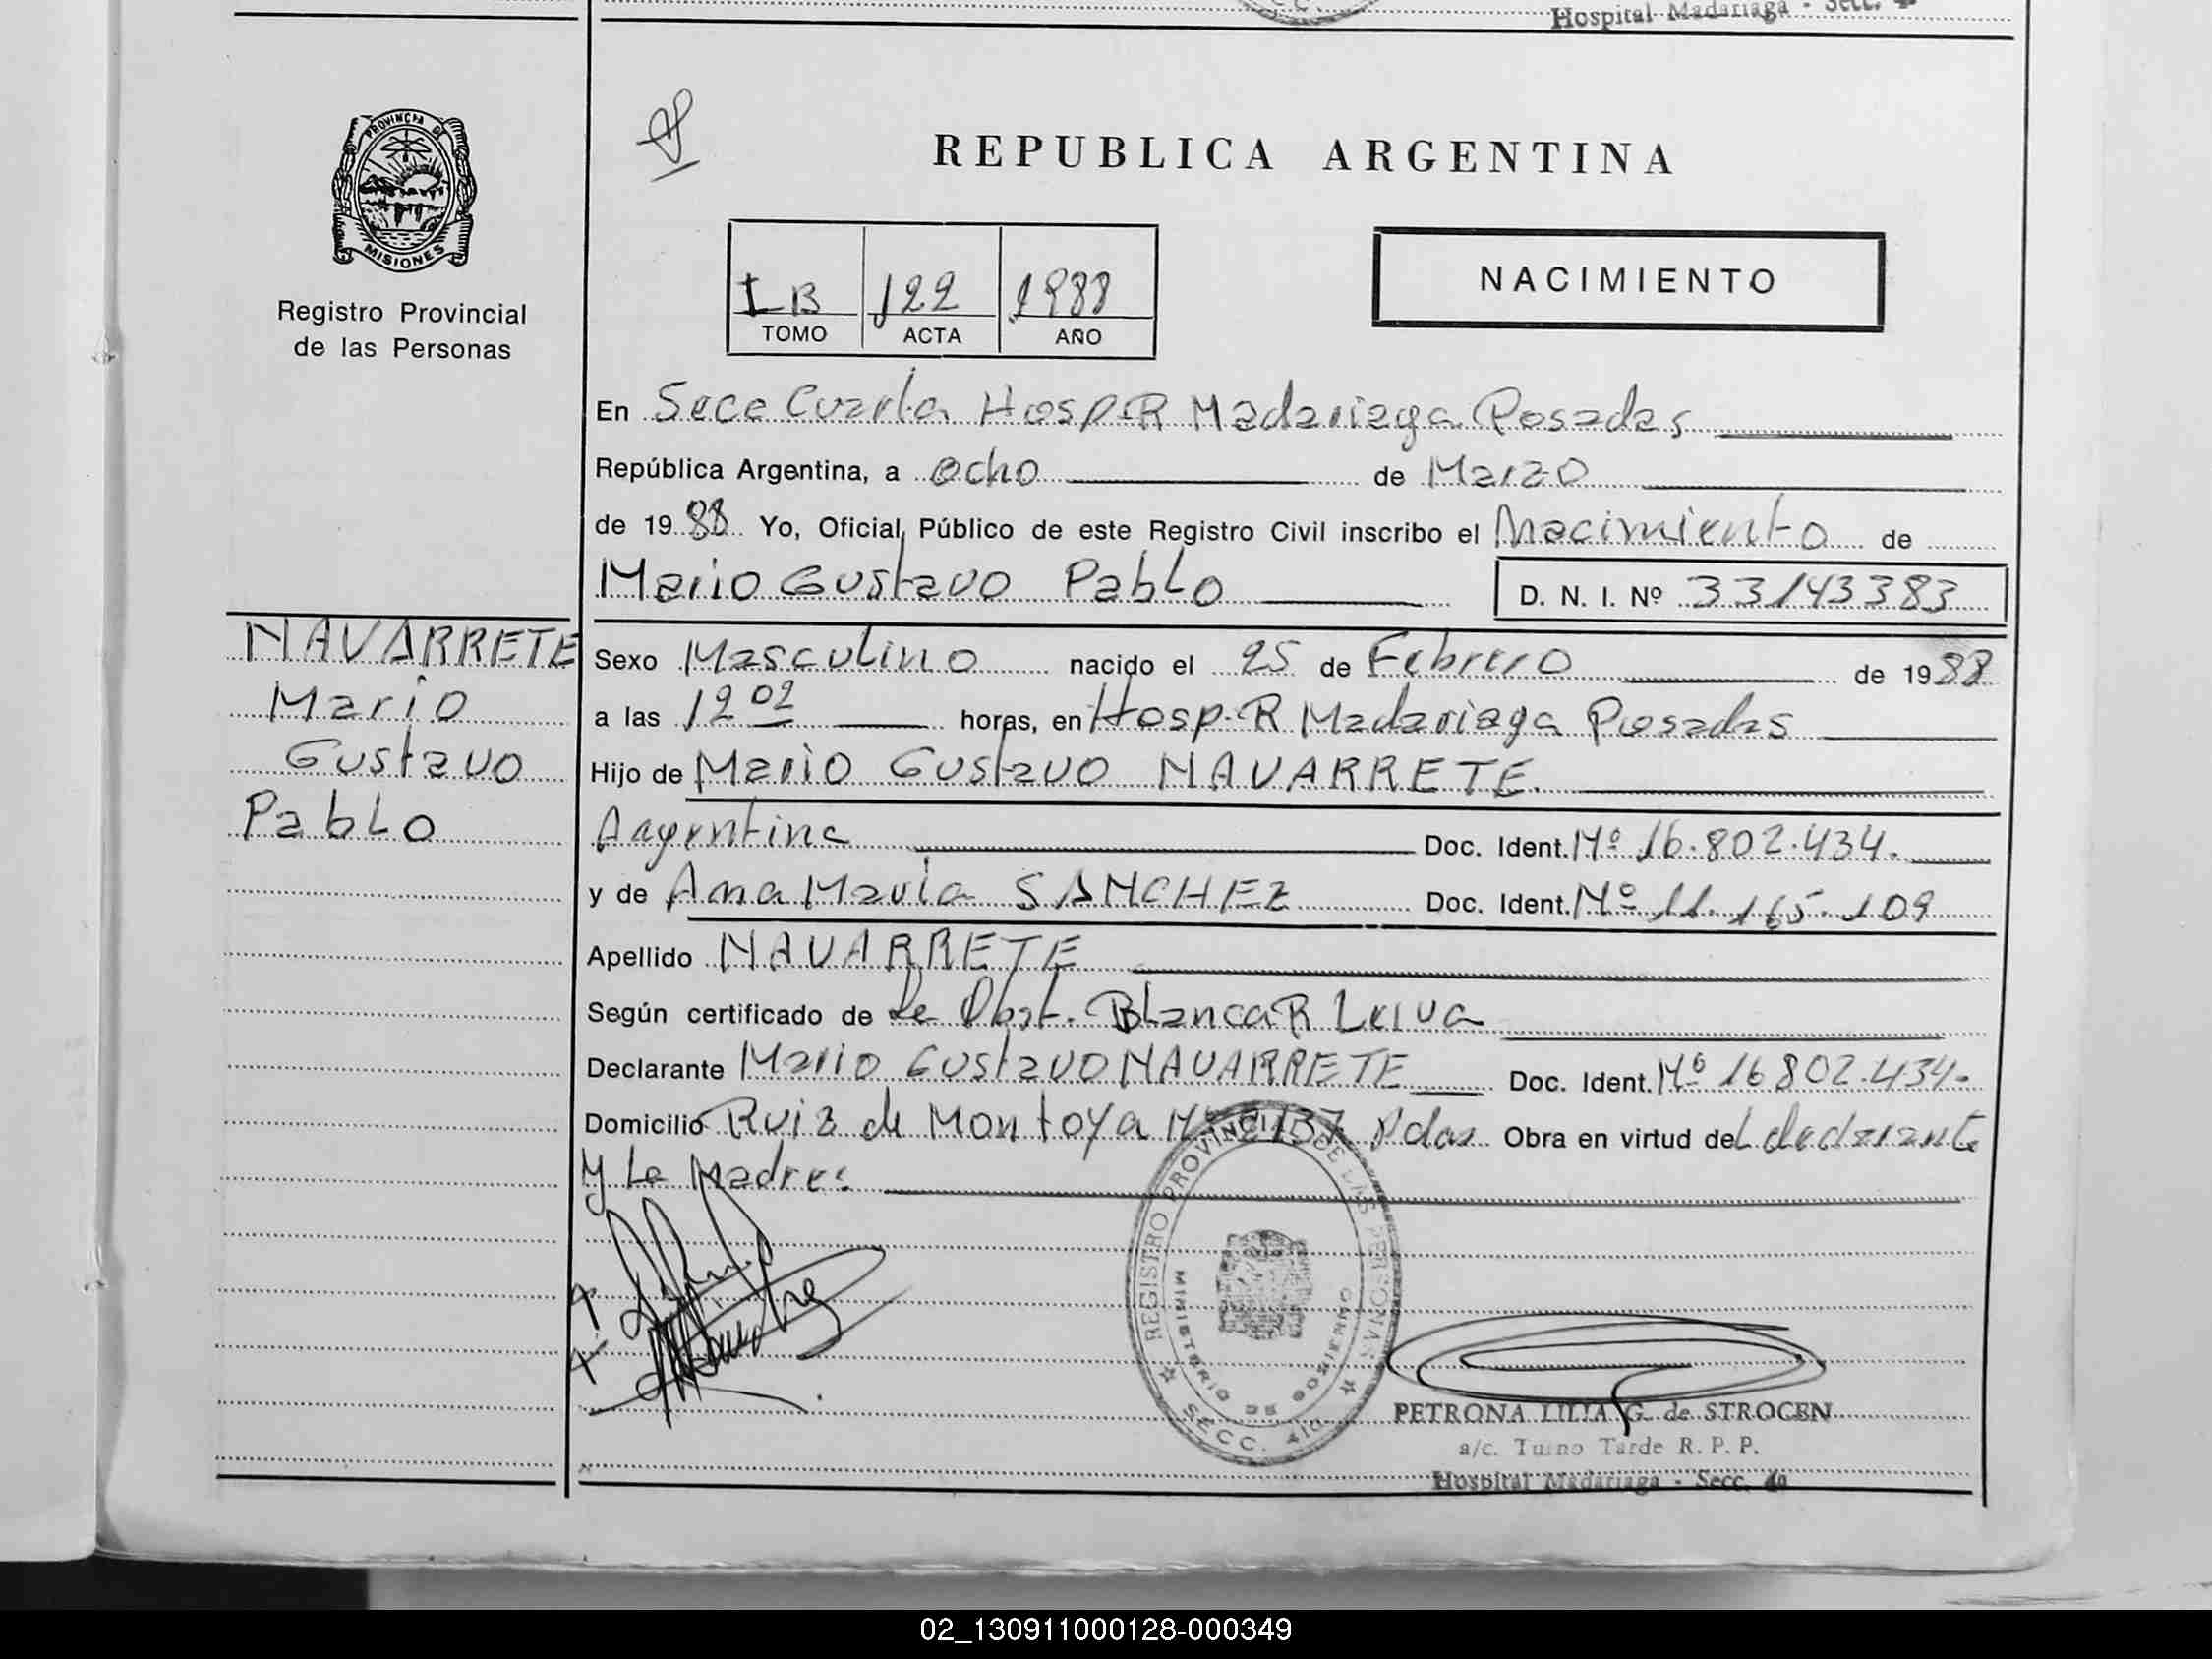 Hospital Madariaga - Secc. 4a
PROVINCIA DE
MISIONES
Registro Provincial
de las Personas
REPUBLICA ARGENTINA
I B 122 1988
TOMO ACTA AÑO
NACIMIENTO
En Secc Cuarta Hosp-R Madariaga Posadas
República Argentina, a ocho de Marzo
de 1988 Yo, Oficial Público de este Registro Civil inscribo el Nacimiento de
Mario Gustavo Pablo D. N. I. Nº 33143383
NAVARRETE
Mario
Gustavo
Pablo
Sexo Masculino nacido el 25 de Febrero de 1988
a las 12 02 horas, en Hosp-R Madariaga Posadas
Hijo de Mario Gustavo NAVARRETE.
Argentina Doc. Ident. Nº 16.802.434.
y de Ana Maria SANCHEZ Doc. Ident. Nº 11.165.109
Apellido NAVARRETE
Según certificado de la Obst. Blanca R Leiva
Declarante Mario Gustavo NAVARRETE Doc. Ident. Nº 16802.434.
Domicilio Ruiz de Montoya Nº 2137 Pdas Obra en virtud del declarante
y La Madre:
REGISTRO PROVINCIAL DE LAS PERSONAS
MINISTERIO DE GOBIERNO
SECC. 4ta
PETRONA LILIA G. de STROCEN
a/c. Turno Tarde R. P. P.
Hospital Madariaga - Secc. 4a
02_130911000128-000349